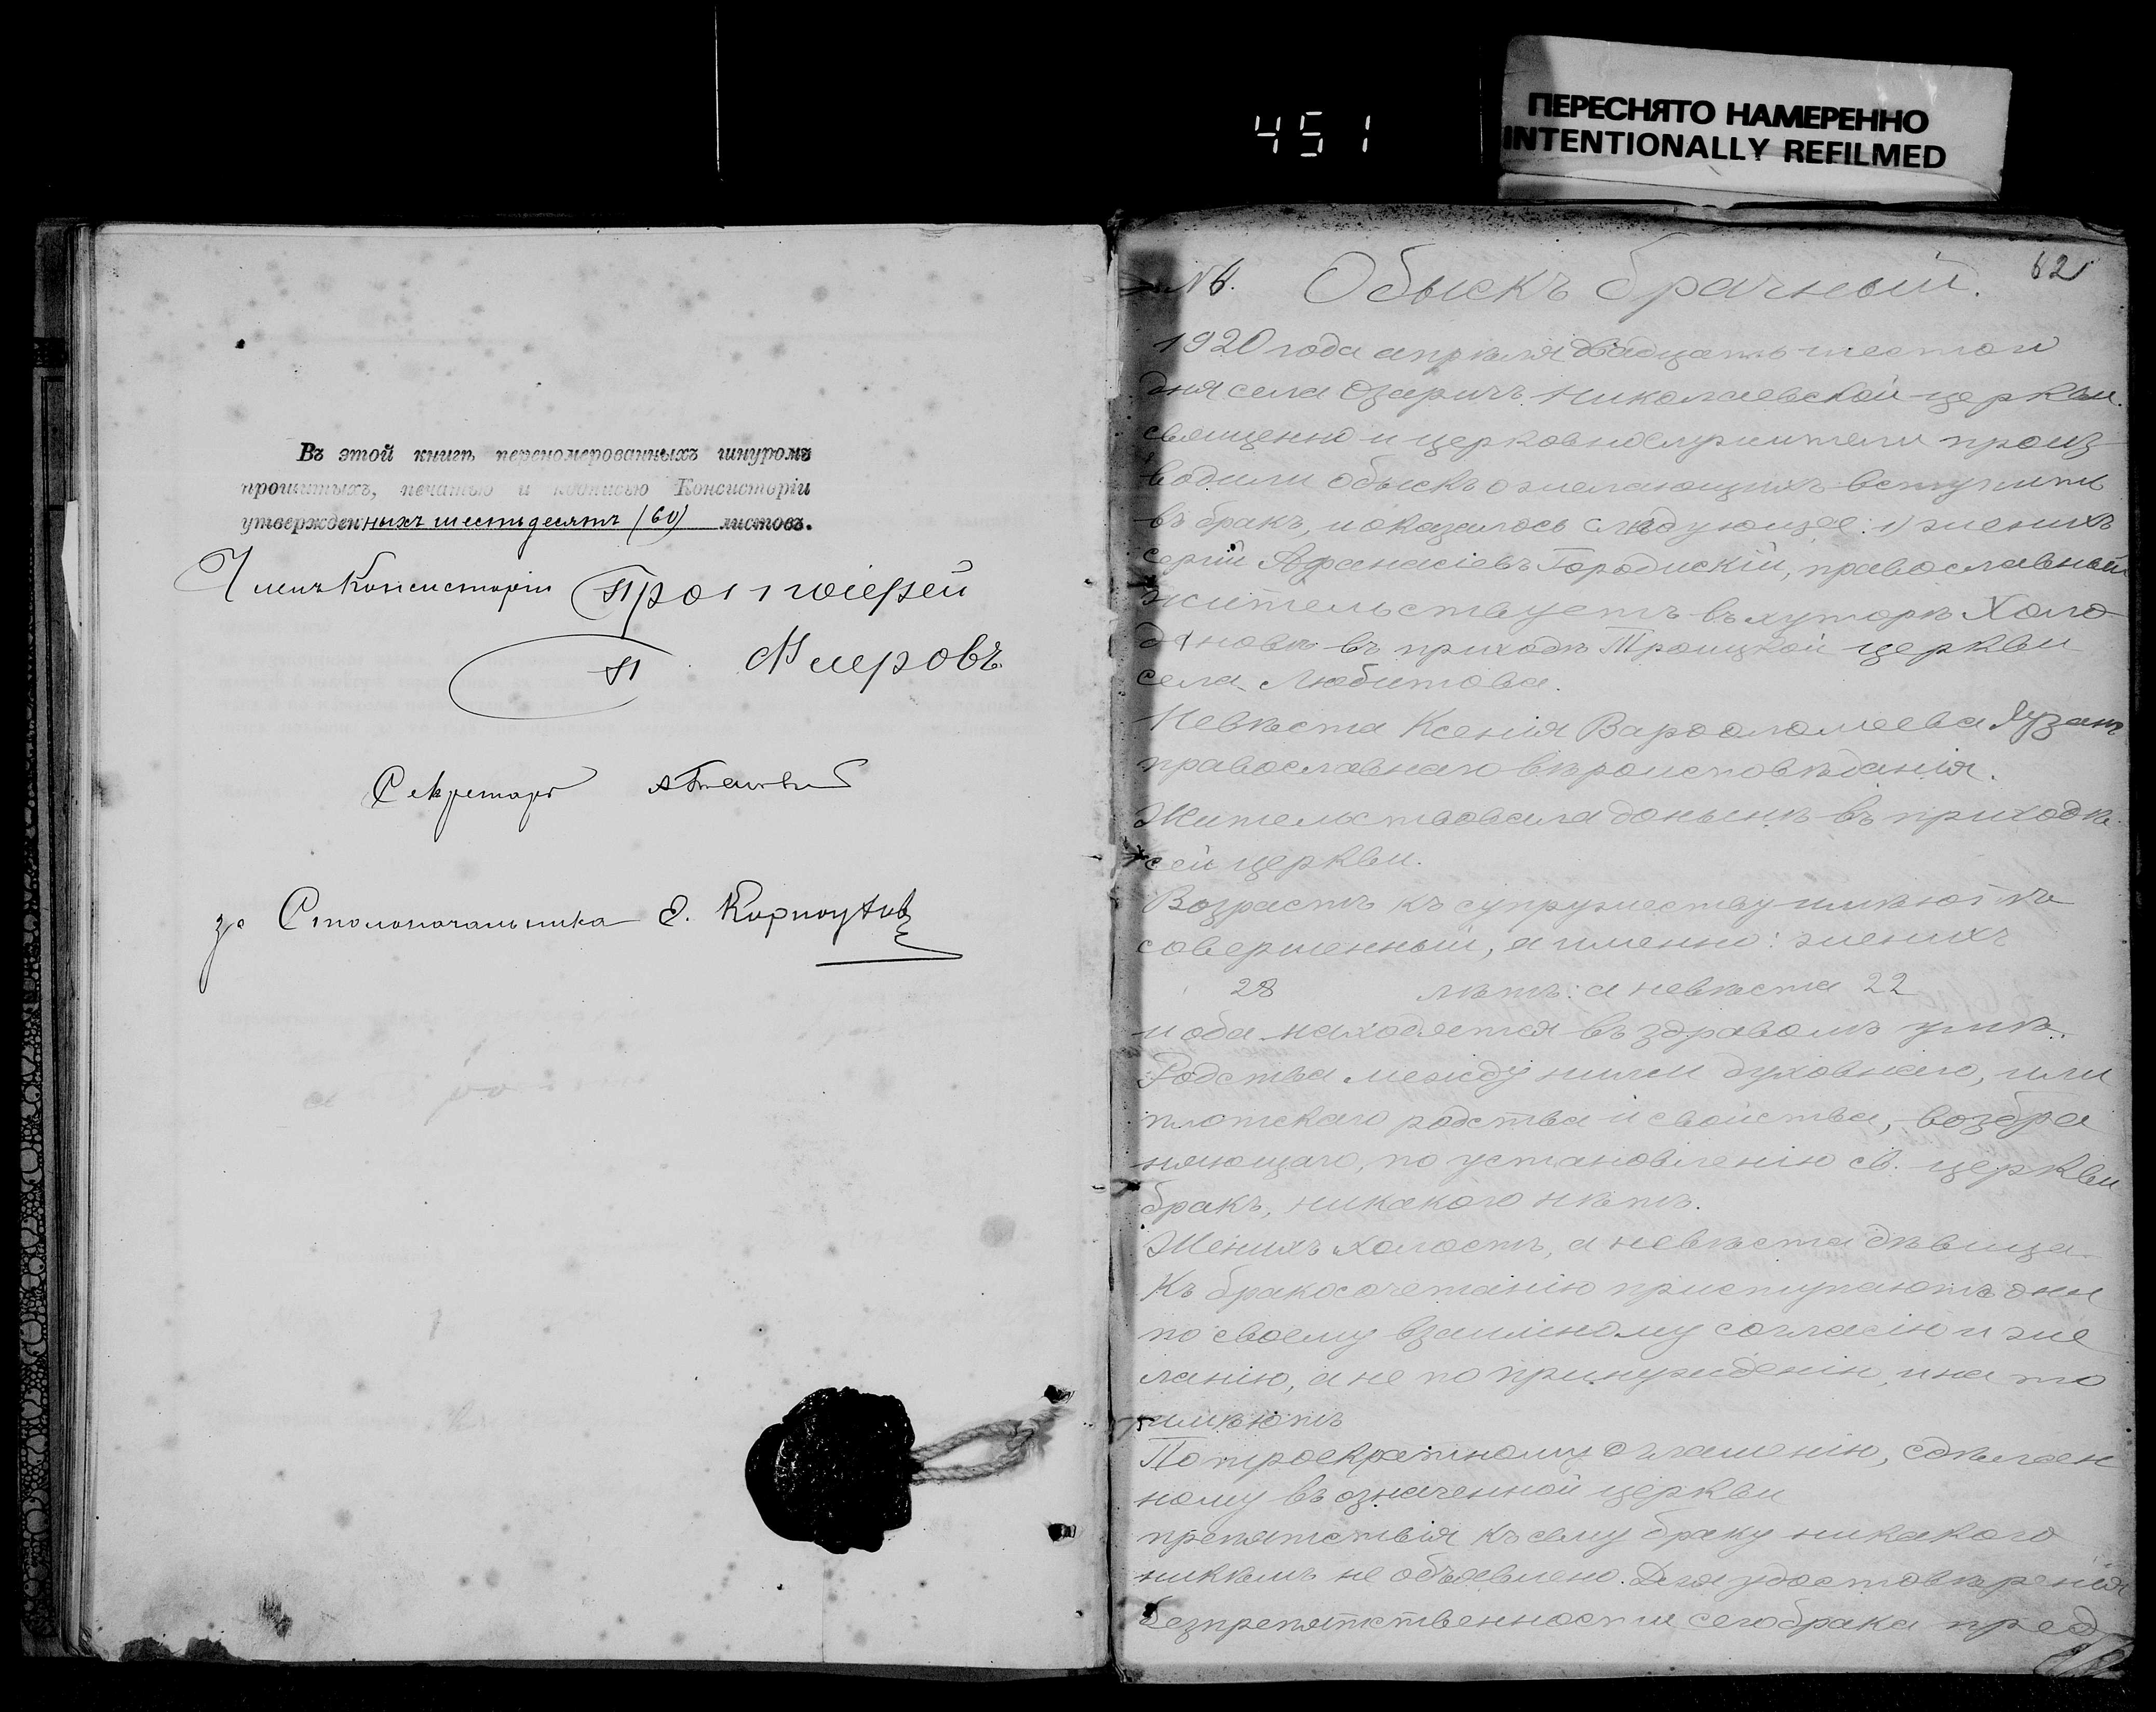 451
ПЕРЕСНЯТО НАМЕРЕННО
INTENTIONALLY REFILMED
Въ этой книгѣ перенумерованныхъ шнуромъ
прошитыхъ, печатью и подписью Консисторіи
утвержденныхъ шестьдесятъ (60) листовъ.
Членъ Консисторіи Протоіерей
П. Мировъ
Секретарь
за Столоначальника Е.
62
№ 6. Обыскъ брачный.
1920 года апрѣля двадцать шестого
дня села Озаричъ Николаевской церкви
священно и церковнослужители произ
водили обыскъ о желающихъ вступить
въ бракъ, и оказалось слѣдующее: 1) женихъ
Сергій Афанасіевъ Городискій, православный
жительствуетъ въ хуторѣ Холо
дяновкѣ въ приходѣ Троицкой церкви
села Любитова.
Невѣста Ксенія Варооломеева
православнаго вѣроисповѣданія.
Жительствовала донынѣ въ приходѣ
сей церкви.
Возрастъ къ супружеству имѣютъ
совершенный, а именно: женихъ
28 лѣтъ: а невѣста 22
и оба находятся въ здравомъ умѣ.
Родства между ними духовнаго, или
плотскаго родства и свойства, возбра
няющаго, по установленію св. церкви
бракъ, никакого нѣтъ.
Женихъ холостъ, а невѣста дѣвица
Къ бракосочетанію приступаютъ они
по своему взаимному согласію и же
ланію, а не по принужденію, и на то
имѣютъ
По троекратному оглашенію, сдѣлан
ному въ означенной церкви
препятствія къ сему браку никакого
никѣмъ не объявлено. Для удостовѣренія
безпрепятственности сего брака пред